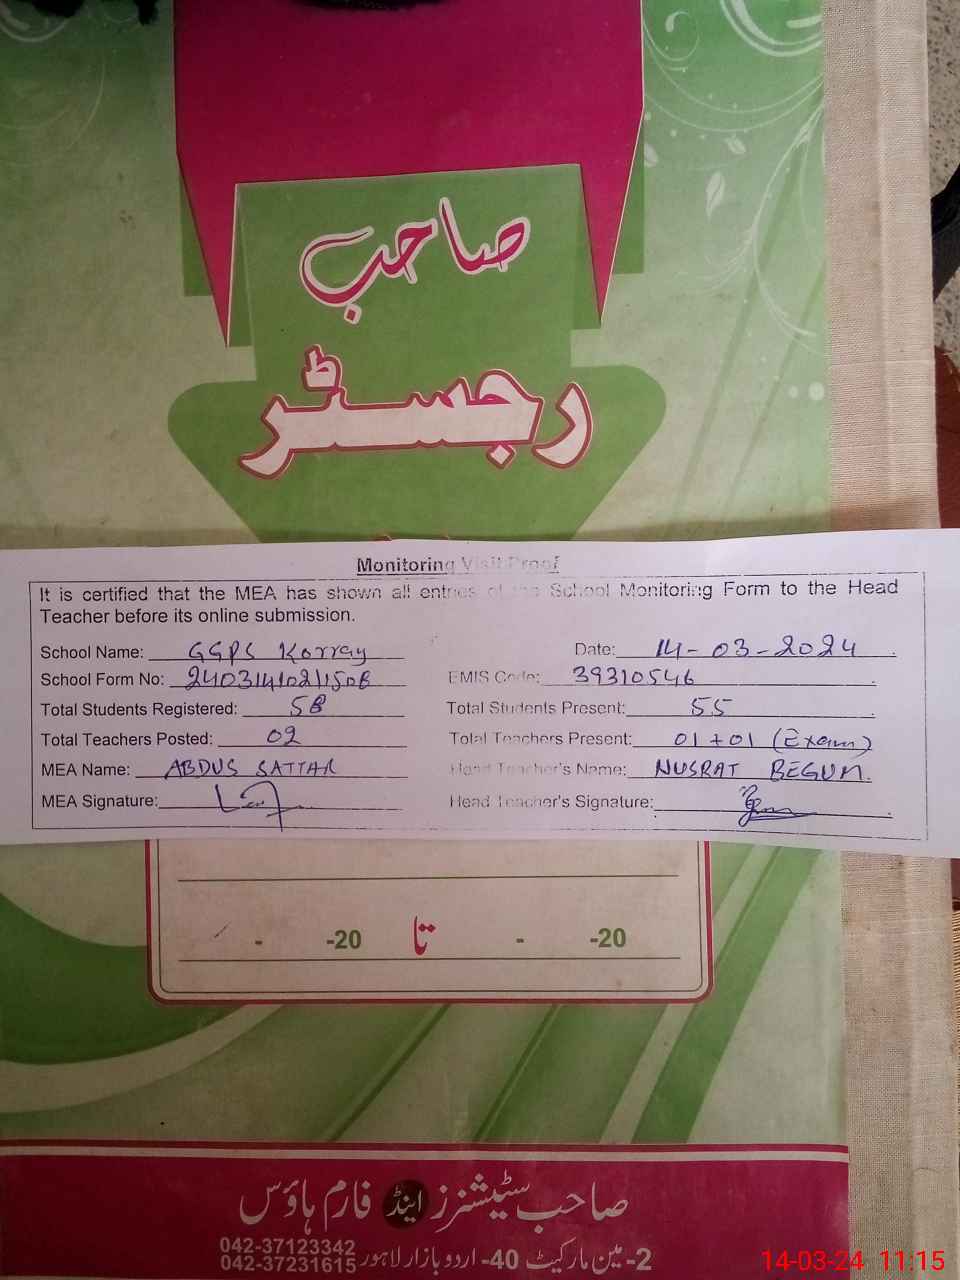 صاحب
رجسٹر
Monitoring Visit Proof
It is certified that the MEA has shown all entries of the School Monitoring Form to the Head
Teacher before its online submission.
School Name: GGPS Korray Date: 14-03-2024
School Form No: EMIS Code: 39310546
Total Students Registered: 58 Total Students Present: 55
Total Teachers Posted: 02 Total Teachers Present: 01+01 (Exam)
MEA Name: ABDUS SATTAR Head Teacher's Name: NUSRAT BEGUM.
MEA Signature: Head Teacher's Signature:
- -20 تا - -20
صاحب سٹیشنرز اینڈ فارم ہاؤس
2-مین مارکیٹ 40-اردو بازار لاہور 042-37123342
042-37231615
14-03-24 11:15